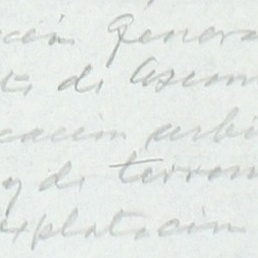 ción Genera
te de Ascen
cación urbi
y de terren
explotación